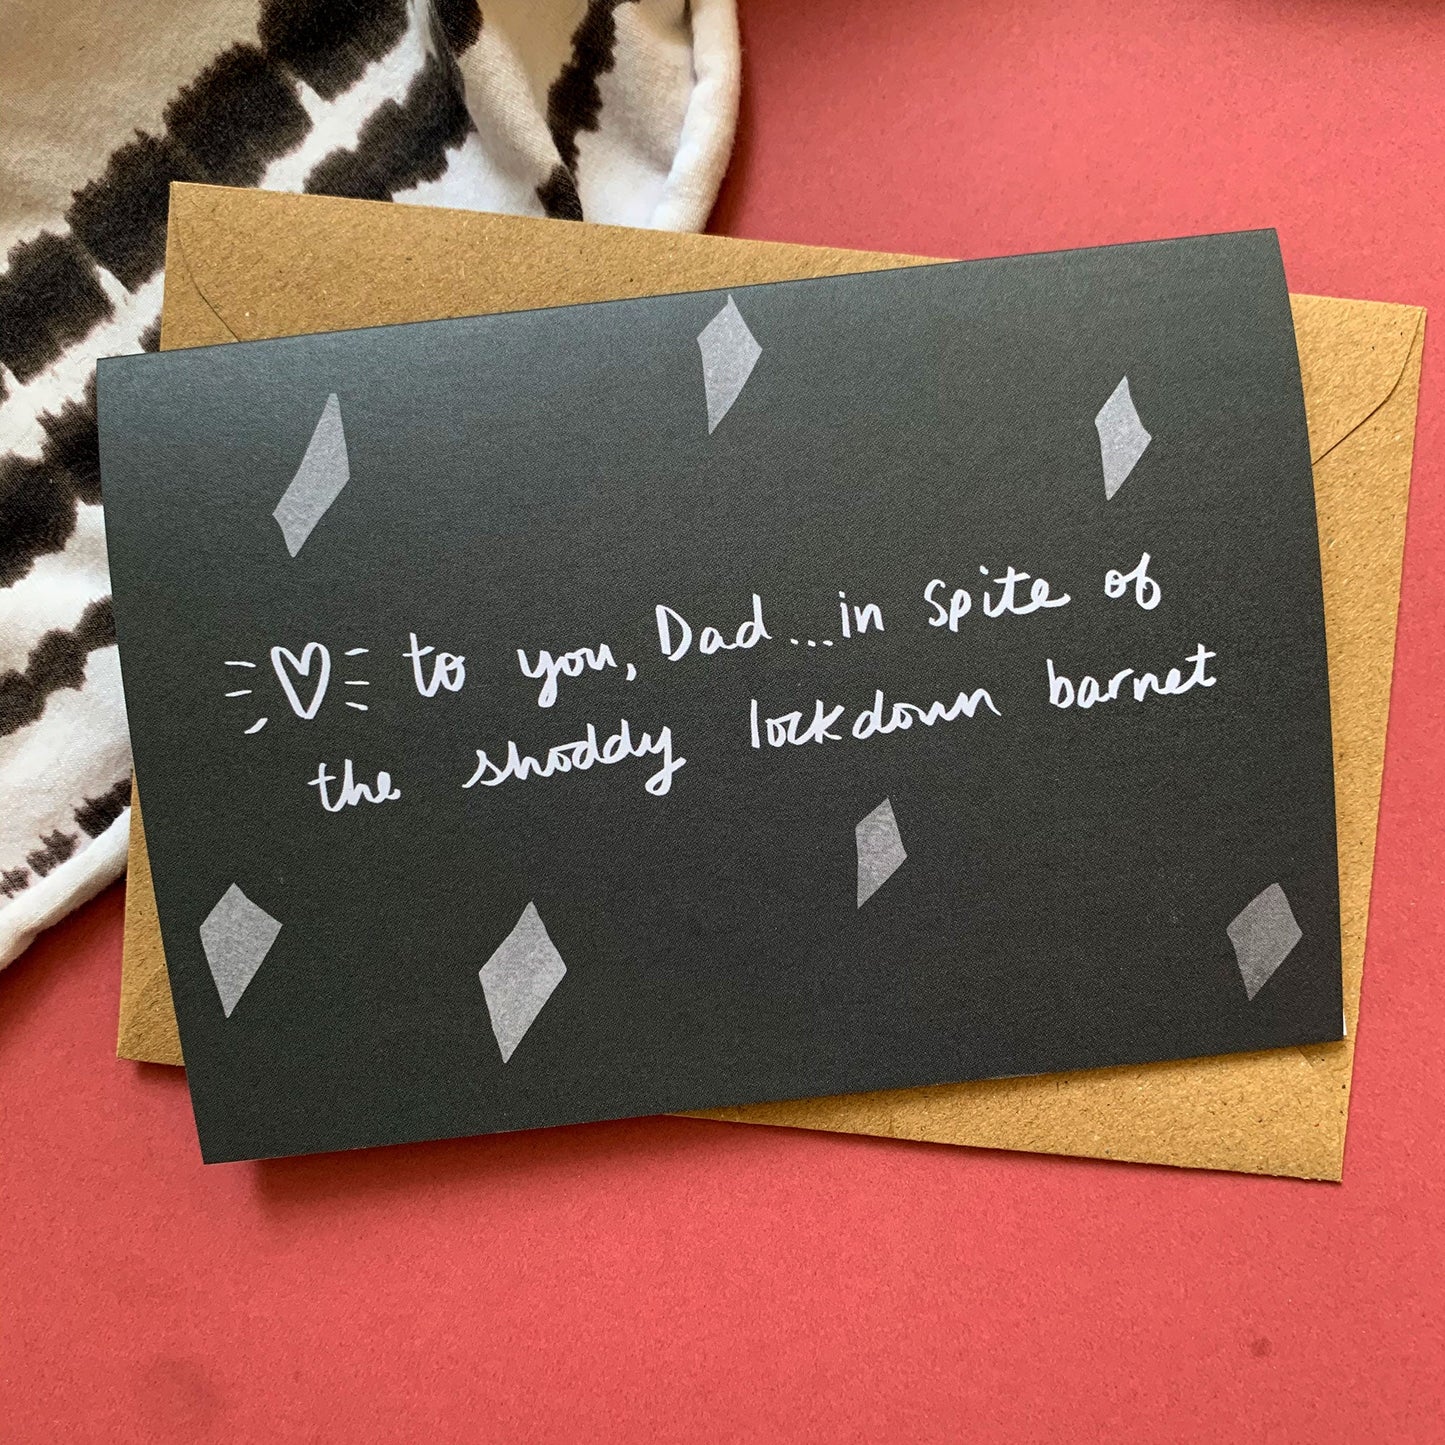 ♡ to you, Dad...in spite of
the shoddy lockdown barnet